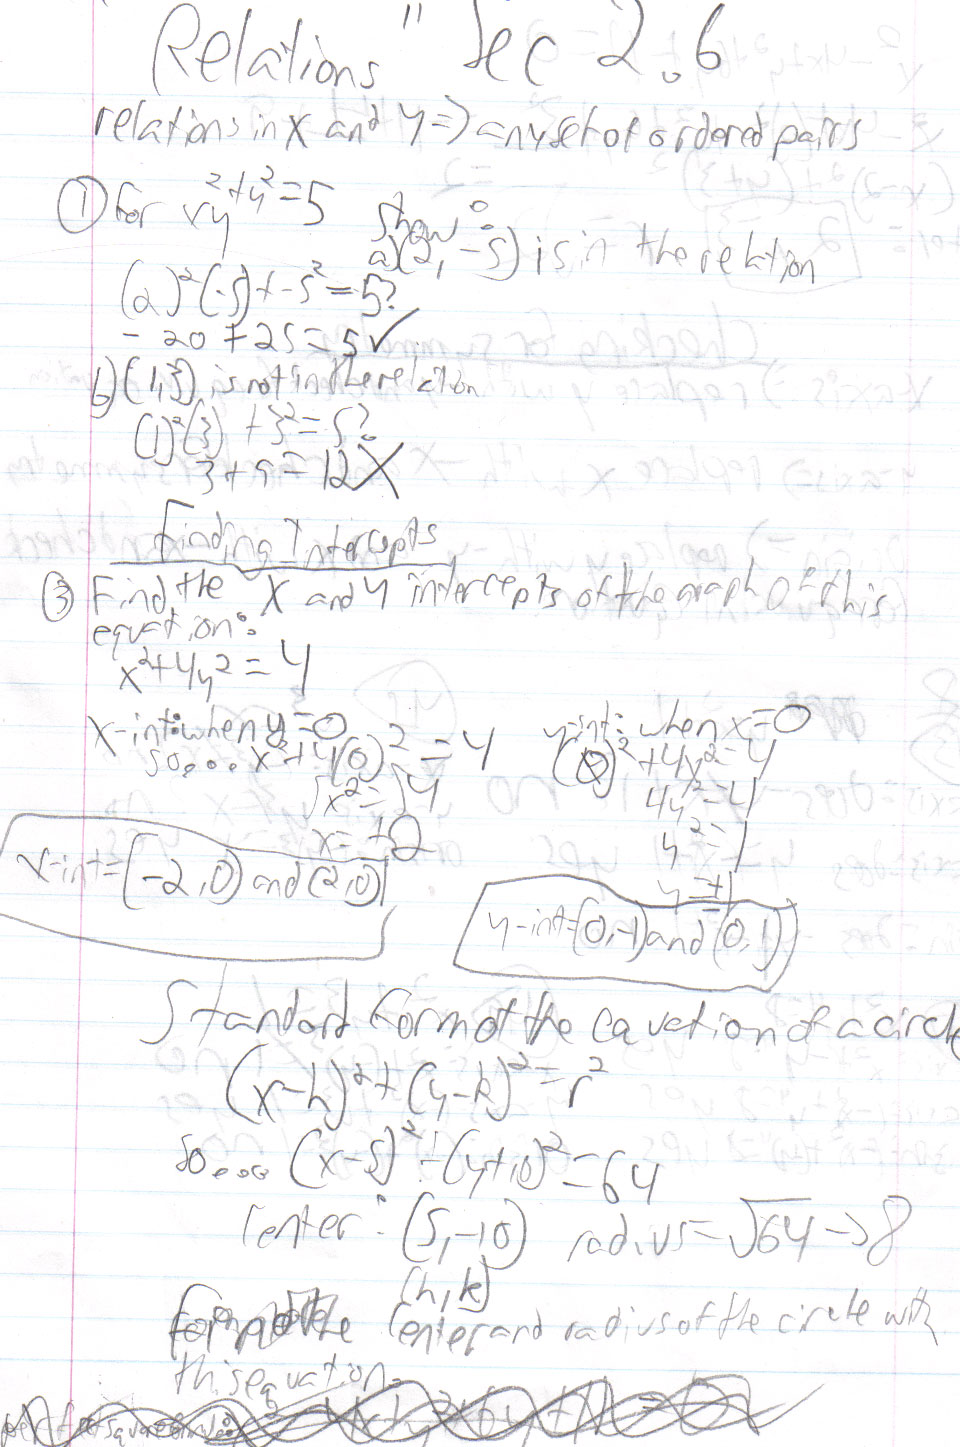 Relations" Sec 2.6
relations in x and y => any set of ordered pairs
① For x²y + y² = 5 show:
a) (2, -5) is in the relation
(2)²(-5) + -5² = 5?
-20 + 25 = 5 ✓
b) (1,3) is not in the relation
(1)²(3) + 3² = 5?
3 + 9 = 12 X
Finding Intercepts
③ Find the x and y intercepts of the graph of this
equation:
x² + 4y² = 4
x-int: when y = 0
so.... x² + 4(0)² = 4
√x² = √4
x = ±2
x-int = (-2,0) and (2,0)
y-int: when x = 0
(0)² + 4y² = 4
4y² = 4
y² = 1
y = ±1
y-int = (0,-1) and (0,1)
Standard form of the equation of a circle
(x-h)² + (y-k)² = r²
so.... (x-5)² + (y+10)² = 64
center: (5,-10) radius = √64 -> 8
(h,k)
the center and radius of the circle with
this equation